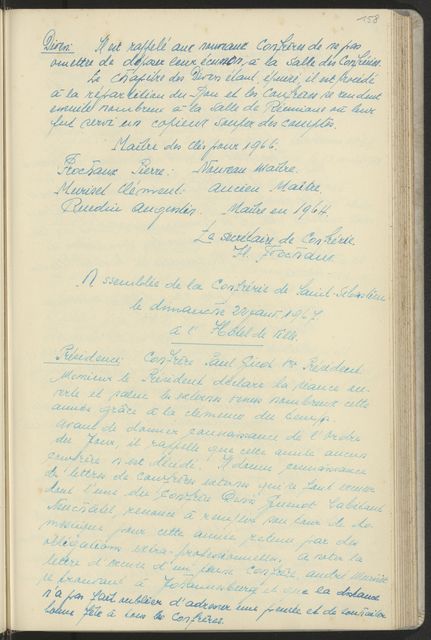 158
Divers: Il est rappelé aux nouveaux Confrères de ne pas
omettre de déposer leur écusson, à la Salle des Confrères.
Le chapitre des Divers étant épuisé, il est procédé
à la répartition du et les Confrères se rendent
ensuite nombreux à la Salle de Réunions où leur
fut servi un copieux souper des comptes.
Maître des clés pour 1966.
Frochaux Pierre: Nouveau Maître.
Muriset Clément: ancien Maître.
Ruedin Augustin. Maître en 1964.
Le secrétaire de Confrérie.
Frochaux
Assemblée de la Confrérie de Saint-Sébastien
le dimanche 22 janv 1967.
à l'Hôtel de Ville.
Présidence: Confrère Paul Gicot Président
Monsieur le Président déclare la séance ou-
verte et salue les venus nombreux cette
année grâce à la clémence du temps.
Avant de donner connaissance de l'ordre
du jour, il rappelle que cette année aucun
confrère n'est décédé. Il donne connaissance
de lettres de confrères
dont l'une du Confrère Quinot habitant
Neuchâtel, renonce à remplir son tour de
pour cette année retenu par des
obligations extra-professionnelles, à noter la
lettre d'un jeune Confrère, André Muriset
se trouvant à Johannesburg et que la distance
n'a pas fait oublier d'adresser une pensée et de souhaiter
bonne fête à tous les Confrères.